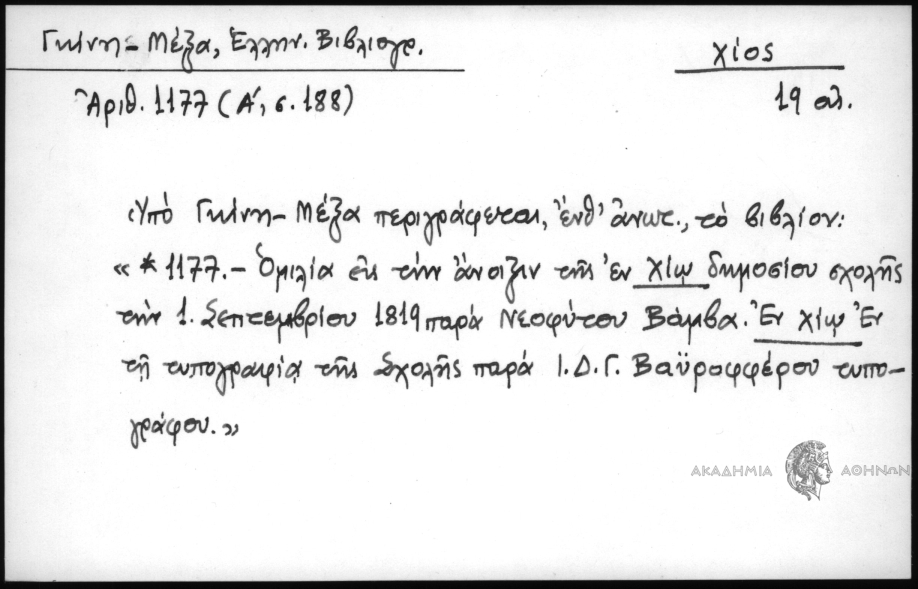 Γκίνη - Μέξα, Ἑλλην. Βιβλιογρ.
Χίος
Ἀριθ. 1177 (Α΄, σ. 188)
19 αἰ.
Ὑπό Γκίνη - Μέξα περιγράφεται, ἔνθ' ἄνωτ., τό βιβλίον:
« * 1177. - Ὁμιλία εἰς τήν ἄνοιξιν τῆς ἐν Χίῳ δημοσίου σχολῆς
τήν 1. Σεπτεμβρίου 1819 παρά Νεοφύτου Βάμβα. Ἐν Χίῳ Ἐν
τῇ τυπογραφίᾳ τῆς Σχολῆς παρά Ι.Δ.Γ. Βαϋροφφέρου τυπο-
γράφου.»
ΑΚΑΔΗΜΙΑ ΑΘΗΝΩΝ